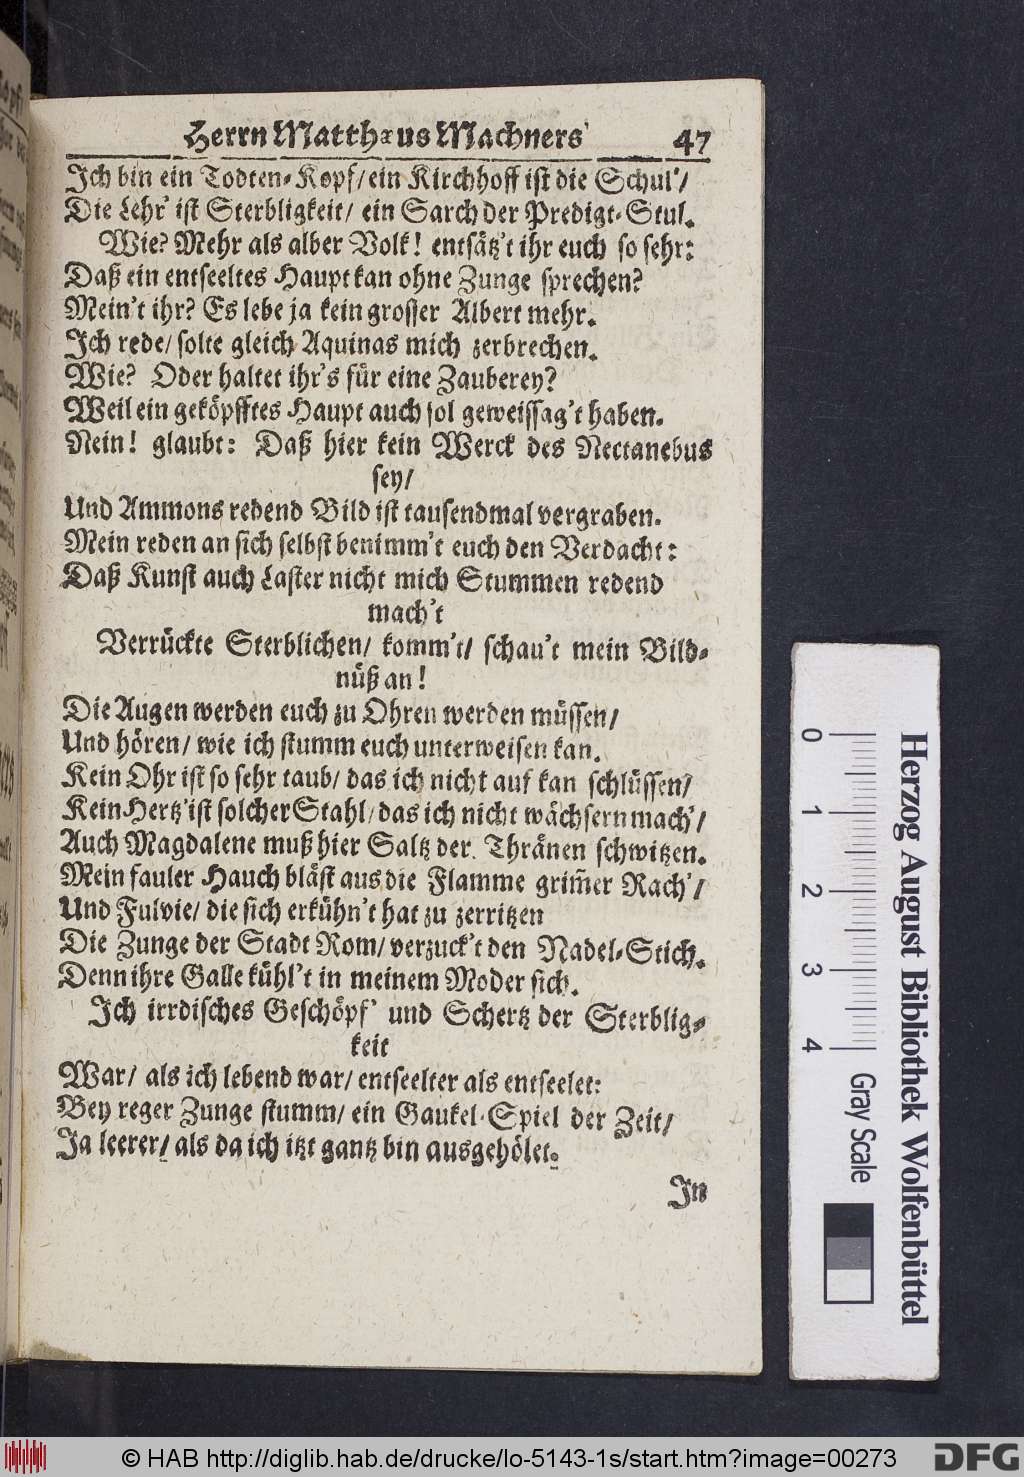 Herrn Matthæus Machners 47
Ich bin ein Todten-Kopf/ ein Kirchhoff ist die Schul'/
Die Lehr' ist Sterbligkeit/ ein Sarch der Predigt-Stul.
Wie? Mehr als alber Volk! entsätz't ihr euch so sehr:
Daß ein entseeltes Haupt kan ohne Zunge sprechen?
Mein't ihr? Es lebe ja kein grosser Albert mehr.
Ich rede/ solte gleich Aquinas mich zerbrechen.
Wie? Oder haltet ihr's für eine Zauberey?
Weil ein geköpfftes Haupt auch sol geweissag't haben.
Nein! glaubt: Daß hier kein Werck des Nectanebus
sey/
Und Ammons redend Bild ist tausendmal vergraben.
Mein reden an sich selbst benimm't euch den Verdacht:
Daß Kunst auch Laster nicht mich Stummen redend
mach't
Verrückte Sterblichen/ komm't/ schau't mein Bild-
nüß an!
Die Augen werden euch zu Ohren werden müssen/
Und hören/ wie ich stumm euch unterweisen kan.
Kein Ohr ist so sehr taub/ das ich nicht auf kan schlüssen/
Kein Hertz' ist solcher Stahl/ das ich nicht wächsern mach'/
Auch Magdalene muß hier Saltz der Thränen schwitzen.
Mein fauler Hauch bläst aus die Flamme grim̃er Rach'/
Und Fulvie/ die sich erkühn't hat zu zerritzen
Die Zunge der Stadt Rom/ verzuck't den Nadel-Stich.
Denn ihre Galle kühl't in meinem Moder sich.
Ich irrdisches Geschöpf' und Schertz der Sterblig-
keit
War/ als ich lebend war/ entseelter als entseelet:
Bey reger Zunge stumm/ ein Gaukel-Spiel der Zeit/
Ja leerer/ als da ich itzt gantz bin ausgehölet.
In
0 1 2 3 4
Gray Scale
Herzog August Bibliothek Wolfenbüttel
© HAB http://diglib.hab.de/drucke/lo-5143-1s/start.htm?image=00273
DFG